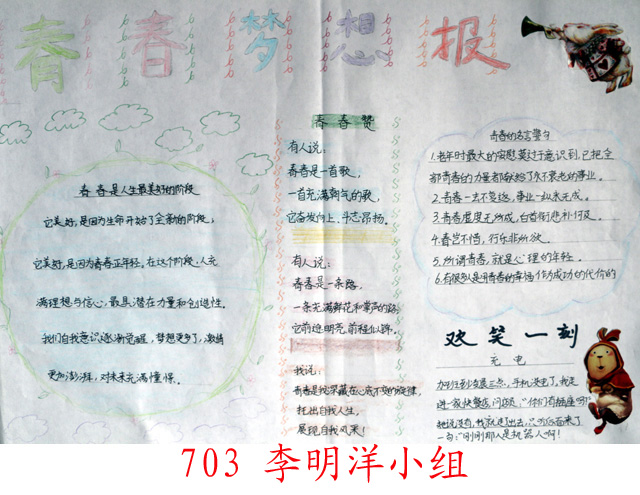 青春梦想报
青春是人生最美好的阶段
它美好,是因为生命开始了全新的阶段;
它美好,是因为青春正年轻。在这个阶段,人充
满理想与信心,最具潜在力量和创造性。
我们自我意识逐渐觉醒,梦想更多了,激情
更加澎湃,对未来充满憧憬。
青春赞
有人说:
青春是一首歌,
一首充满朝气的歌,
它奋发向上、斗志昂扬。
有人说:
青春是一条路,
一条充满鲜花和掌声的路
它前途明亮、前程似锦。
我说:
青春是我深藏在心底不变的旋律,
托出自我人生,
展现自我风采!
青春的名言警句
1.老年时最大的安慰莫过于意识到,已把全
部青春的力量都献给了永不衰老的事业。
2.青春一去不复返,事业一纵永无成。
3.青春虚度无所成,白首衔悲补何及。
4.春岂不惜,行乐非所欲。
5.所谓青春,就是心理的年轻。
6.有很多人是用青春的幸福作为成功的代价的
欢笑一刻
充电
加班到凌晨三点,手机没电了,我走
进一家快餐店,问店员:“你们有插座吗?”
她说没有,我就走了出去,只听后面来了
一句:“刚刚那人是机器人啊!
703 李明洋小组